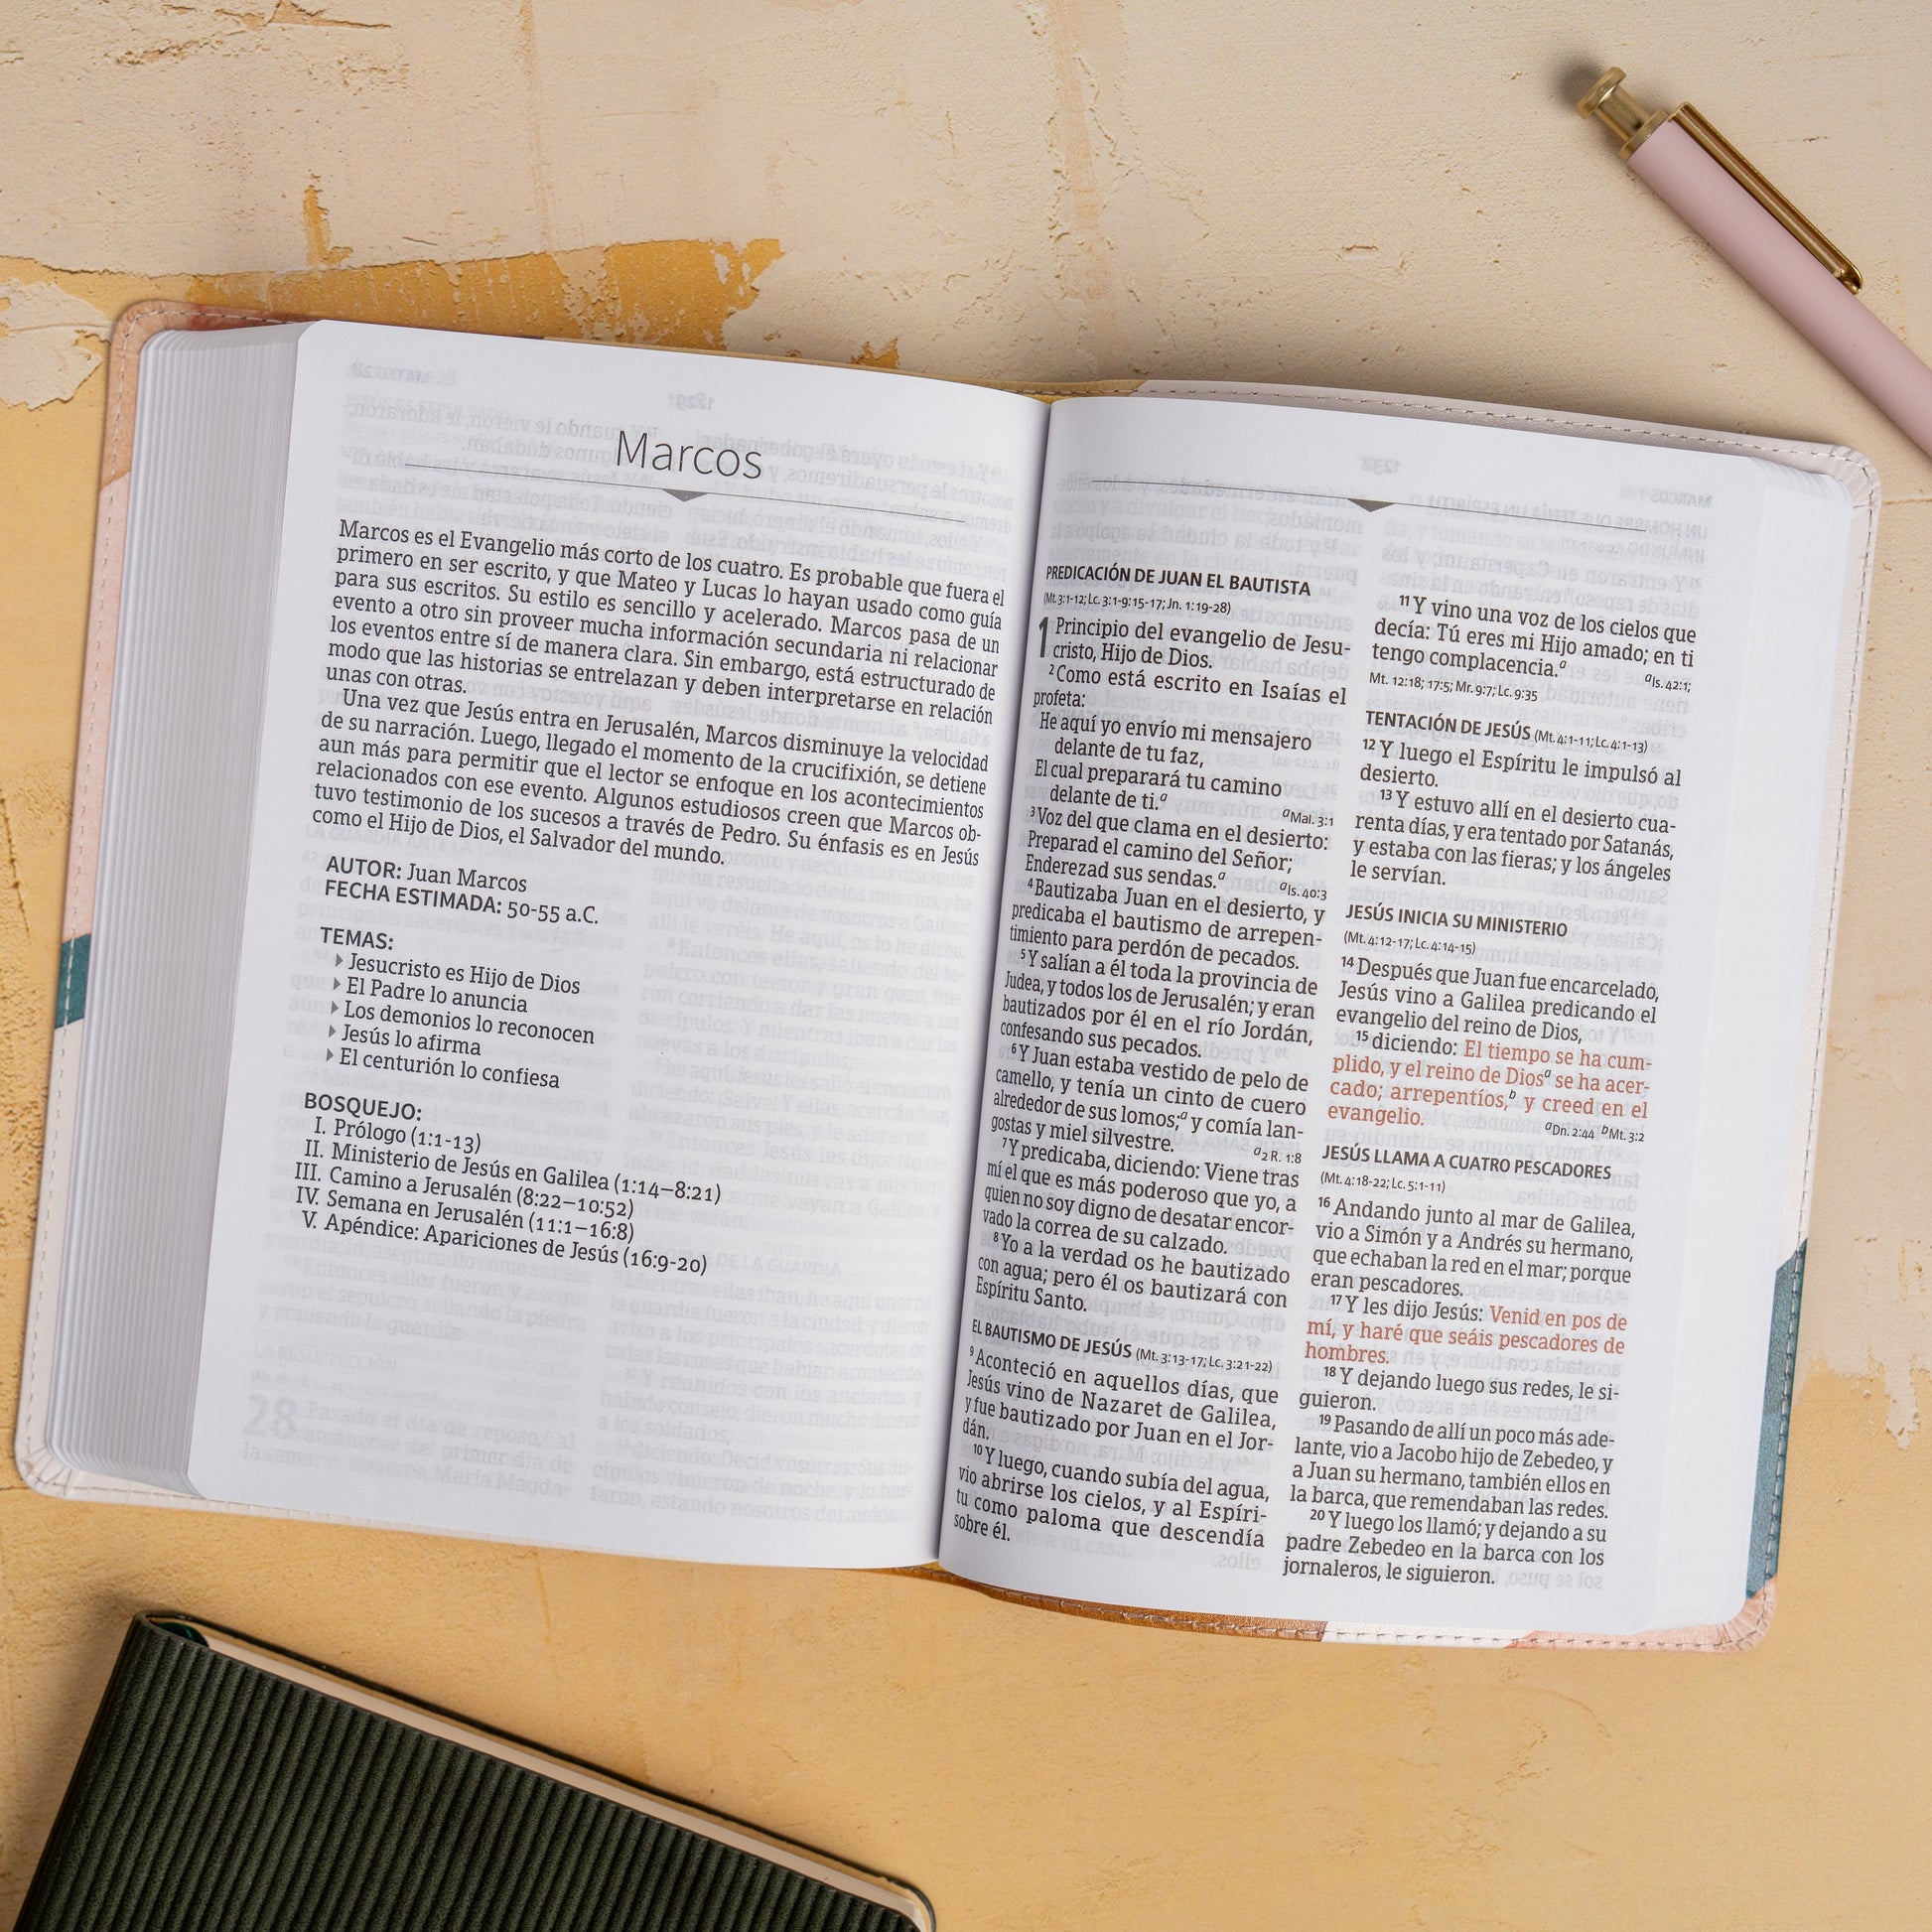 Marcos
Marcos es el Evangelio más corto de los cuatro. Es probable que fuera el
primero en ser escrito, y que Mateo y Lucas lo hayan usado como guía
para sus escritos. Su estilo es sencillo y acelerado. Marcos pasa de un
evento a otro sin proveer mucha información secundaria ni relacionar
los eventos entre sí de manera clara. Sin embargo, está estructurado de
modo que las historias se entrelazan y deben interpretarse en relación
unas con otras.
Una vez que Jesús entra en Jerusalén, Marcos disminuye la velocidad
de su narración. Luego, llegado el momento de la crucifixión, se detiene
aun más para permitir que el lector se enfoque en los acontecimientos
relacionados con ese evento. Algunos estudiosos creen que Marcos ob-
tuvo testimonio de los sucesos a través de Pedro. Su énfasis es en Jesús
como el Hijo de Dios, el Salvador del mundo.
AUTOR: Juan Marcos
FECHA ESTIMADA: 50-55 a.C.
TEMAS:
Jesucristo es Hijo de Dios
El Padre lo anuncia
Los demonios lo reconocen
Jesús lo afirma
El centurión lo confiesa
BOSQUEJO:
I. Prólogo (1:1-13)
II. Ministerio de Jesús en Galilea (1:14–8:21)
III. Camino a Jerusalén (8:22–10:52)
IV. Semana en Jerusalén (11:1–16:8)
V. Apéndice: Apariciones de Jesús (16:9-20)
PREDICACIÓN DE JUAN EL BAUTISTA
(Mt. 3:1-12; Lc. 3:1-9:15-17; Jn. 1:19-28)
1 Principio del evangelio de Jesu-
cristo, Hijo de Dios.
2 Como está escrito en Isaías el
profeta:
He aquí yo envío mi mensajero
delante de tu faz,
El cual preparará tu camino
delante de ti.a
a Mal. 3:1
3 Voz del que clama en el desierto:
Preparad el camino del Señor;
Enderezad sus sendas.a a Is. 40:3
4 Bautizaba Juan en el desierto, y
predicaba el bautismo de arrepen-
timiento para perdón de pecados.
5 Y salían a él toda la provincia de
Judea, y todos los de Jerusalén; y eran
bautizados por él en el río Jordán,
confesando sus pecados.
6 Y Juan estaba vestido de pelo de
camello, y tenía un cinto de cuero
alrededor de sus lomos;a y comía lan-
gostas y miel silvestre. a 2 R. 1:8
7 Y predicaba, diciendo: Viene tras
mí el que es más poderoso que yo, a
quien no soy digno de desatar encor-
vado la correa de su calzado.
8 Yo a la verdad os he bautizado
con agua; pero él os bautizará con
Espíritu Santo.
EL BAUTISMO DE JESÚS (Mt. 3:13-17; Lc. 3:21-22)
9 Aconteció en aquellos días, que
Jesús vino de Nazaret de Galilea,
y fue bautizado por Juan en el Jor-
dán.
10 Y luego, cuando subía del agua,
vio abrirse los cielos, y al Espíri-
tu como paloma que descendía
sobre él.
11 Y vino una voz de los cielos que
decía: Tú eres mi Hijo amado; en ti
tengo complacencia.a a Is. 42:1;
Mt. 12:18; 17:5; Mr. 9:7; Lc. 9:35
TENTACIÓN DE JESÚS (Mt. 4:1-11; Lc. 4:1-13)
12 Y luego el Espíritu le impulsó al
desierto.
13 Y estuvo allí en el desierto cua-
renta días, y era tentado por Satanás,
y estaba con las fieras; y los ángeles
le servían.
JESÚS INICIA SU MINISTERIO
(Mt. 4:12-17; Lc. 4:14-15)
14 Después que Juan fue encarcelado,
Jesús vino a Galilea predicando el
evangelio del reino de Dios,
15 diciendo: El tiempo se ha cum-
plido, y el reino de Diosa se ha acer-
cado; arrepentíos,b y creed en el
evangelio. a Dn. 2:44 b Mt. 3:2
JESÚS LLAMA A CUATRO PESCADORES
(Mt. 4:18-22; Lc. 5:1-11)
16 Andando junto al mar de Galilea,
vio a Simón y a Andrés su hermano,
que echaban la red en el mar; porque
eran pescadores.
17 Y les dijo Jesús: Venid en pos de
mí, y haré que seáis pescadores de
hombres.
18 Y dejando luego sus redes, le si-
guieron.
19 Pasando de allí un poco más ade-
lante, vio a Jacobo hijo de Zebedeo, y
a Juan su hermano, también ellos en
la barca, que remendaban las redes.
20 Y luego los llamó; y dejando a su
padre Zebedeo en la barca con los
jornaleros, le siguieron.